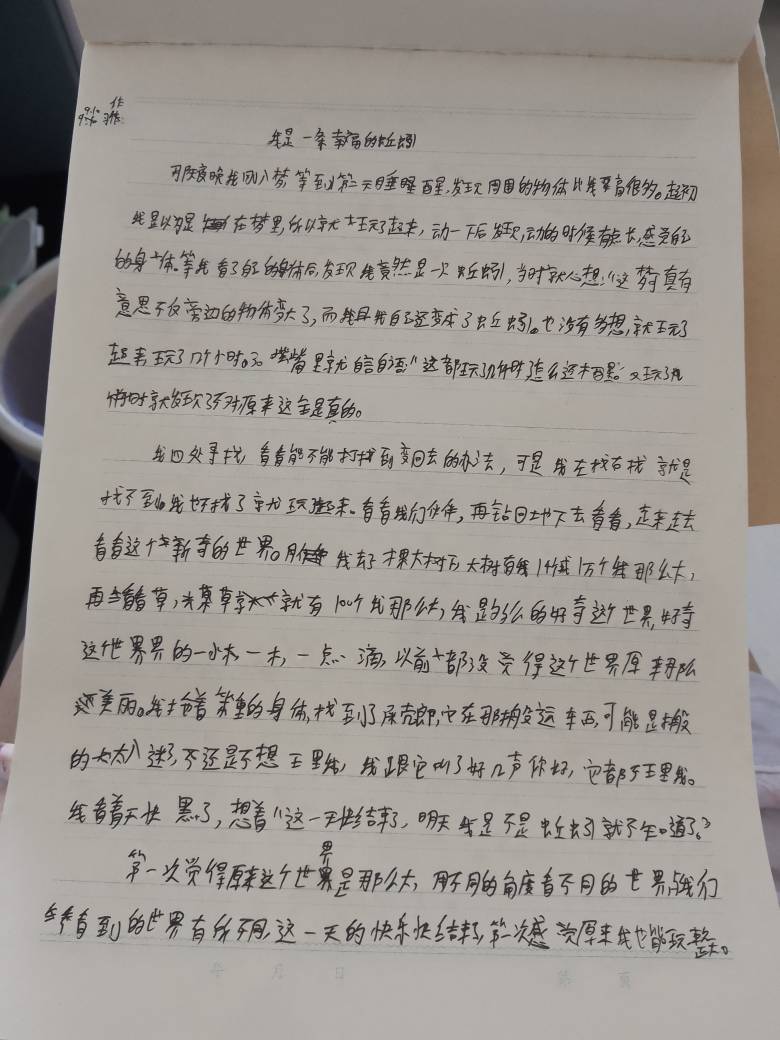 作
9.10
9:10 习作
我是一条幸福的蚯蚓
夜晚我刚入梦,等到第二天睡醒 发现周围的物体比我要高很多。起初
我是以为是 在梦里,所以就 玩了起来,动一下后发现,动的时候有点长,感觉自己
的身体。等我看了自己的身体后,发现我竟然是一只蚯蚓,当时就心想:“这梦可真有
意思不仅旁边的物体变大了,而我且我自己还变成了蚯蚓。也没有多想,就玩了
起来玩了几个小时。 嘴里就自言自语“这都玩了几小时怎么还没 又玩了几
小时就发现了不对原来这全是真的。
我四处寻找,看看能不能打找到变回去的办法,可是我左找右找 就是
找不到。我也不找了就 玩起来。看看我们伙伴,再钻回地下去看看,走来走去
看看这个新奇的世界。 我去了一棵大树下,大树有我 1万个我那么大,
再看看草, 草就有100个我那么大,我是多么的好奇这个世界,好奇
这个世界的一水一木,一点一滴,以前都没觉得这个世界原来那么
美丽。我拖着笨重的身体,找到了 它在那搬运东西,可能是搬
的太入迷了,不还是不想理我,我跟它叫了好几声你好,它都不理我。
我看着天快黑了,想着“这一天快结束了,明天我是不是蚯蚓就不知道了。”
界
第一次觉得原来这个世界是那么大,用不同的角度看不同的世界,与我们
看到的世界有所不同,这一天的快乐快结束了,第一次感觉原来我也能玩整天。
年 月 日 第 页